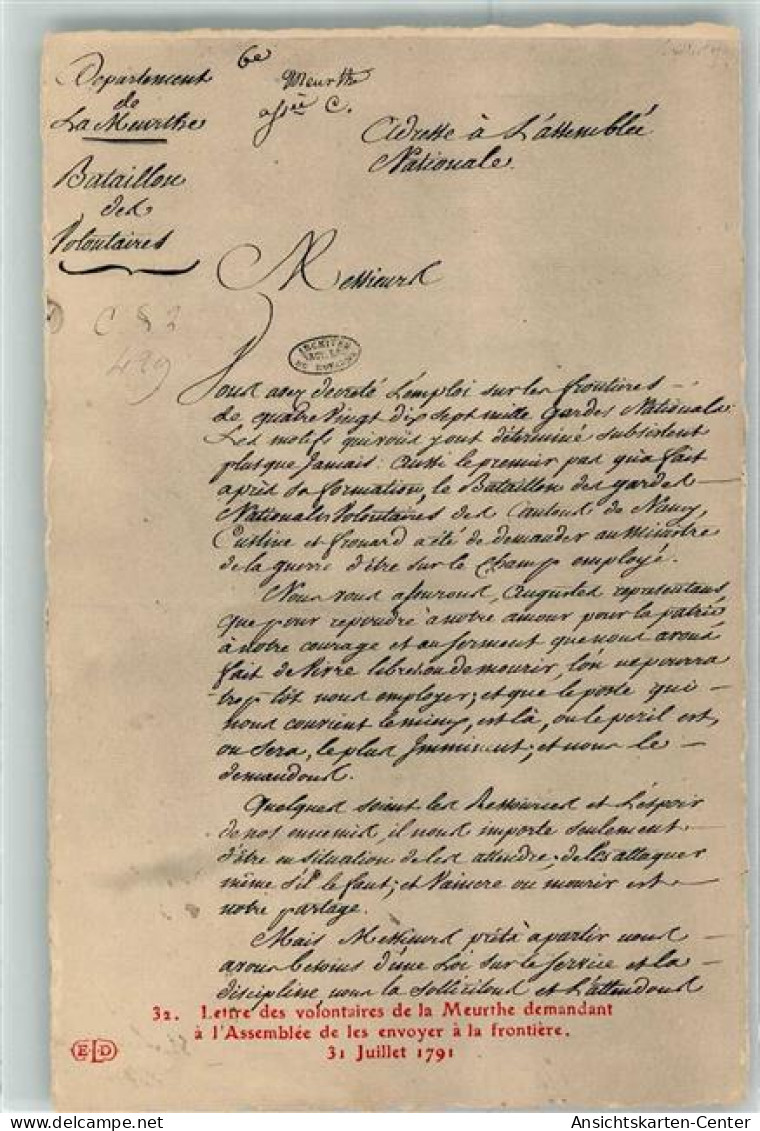 Departement
de
La Meurthe
Bataillon
des
Volontaires
6e
Meurthe
C.
Adresse à L'assemblée
Nationale.
Messieurs
C § 2
429
ARCHIVES
DU ROYAUME
Vous avez decreté L'emploi sur les frontieres
de quatre Vingt dix sept mille Gardes Nationales.
Les motifs qui vous y ont déterminé subsistent
plus que Jamais: Aussi le premier pas qu'a fait
après sa formation, le Bataillon des gardes
Nationales Volontaires des Cantons de Nancy,
Custine et frouard a été de demander au Ministre
de la guerre d'être sur le Champ employé.
Nous vous assurons, Augustes representans,
que pour repondre à notre amour pour la patrie
à notre courage et au serment que nous avons
fait de Vivre libres ou de mourir, l'on ne pourra
trop tôt nous employer; et que le poste qui
nous convient le mieux, est là, ou le peril est,
ou sera, le plus Imminent; et nous le
demandons.
Quelques soient les Ressources et L'espoir
de nos ennemis, il nous importe seulement
d'être en situation de les attendre; de les attaquer
même s'il le faut; et Vaincre ou mourir est
notre partage.
Mais Messieurs prêts a partir nous
avons besoins d'une Loi sur le service et la
discipline, nous la Sollicitons et L'attendons
32. Lettre des volontaires de la Meurthe demandant
à l'Assemblée de les envoyer à la frontière.
31 Juillet 1791
E L D
Ansichtskarten-Center